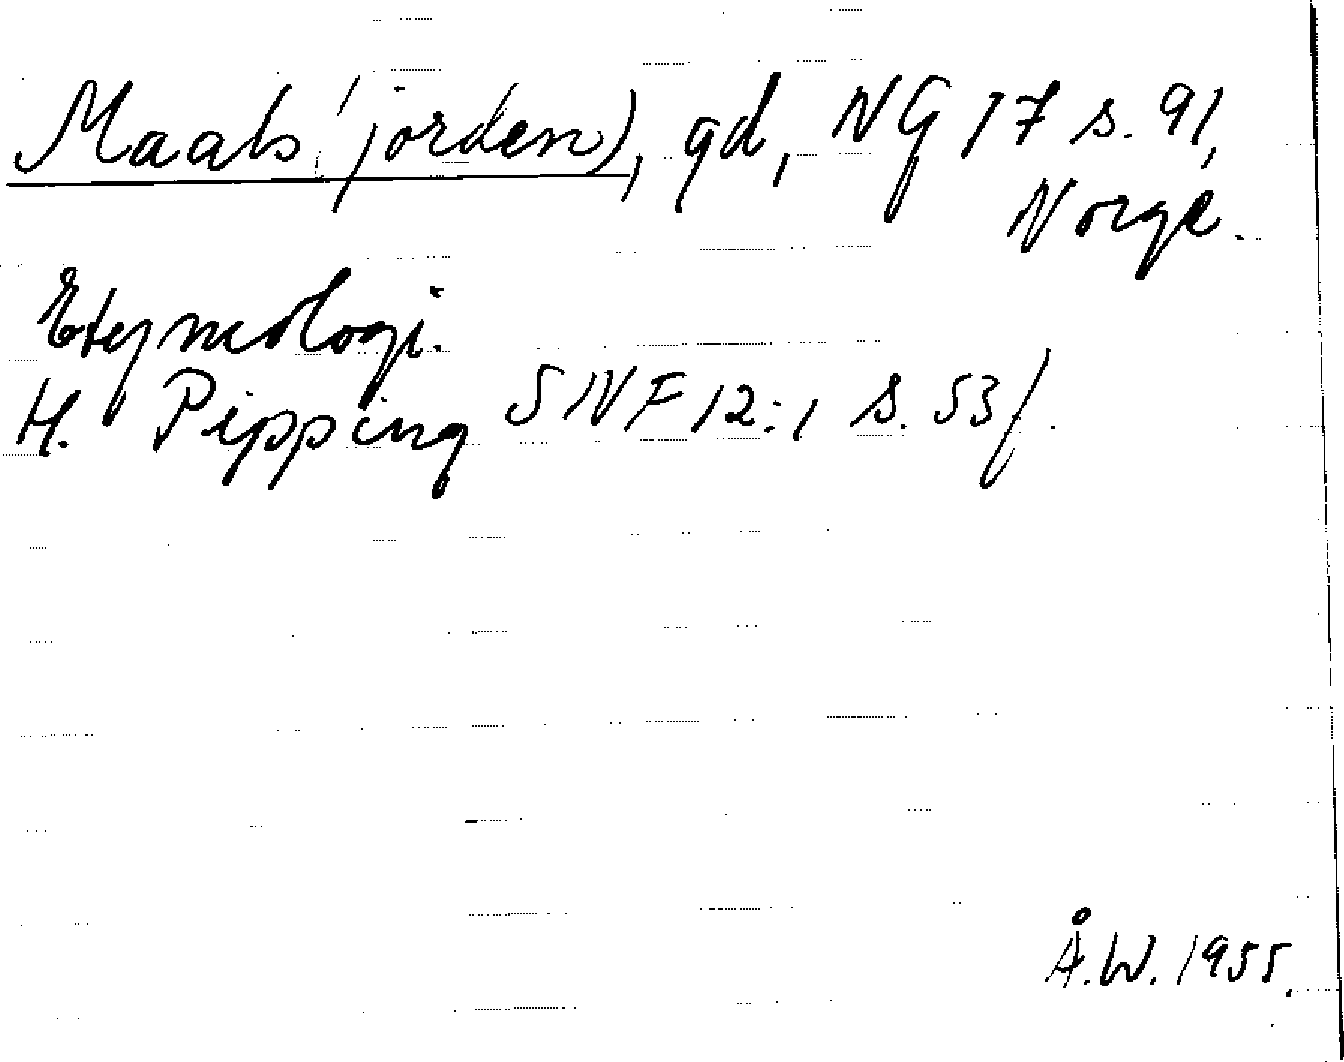 Maals(jorden), gd, NG 17 s. 91,
Norge.
Etymologi.
H. Pipping SNF 12:1 s. 53f.
Å.W. 1955.